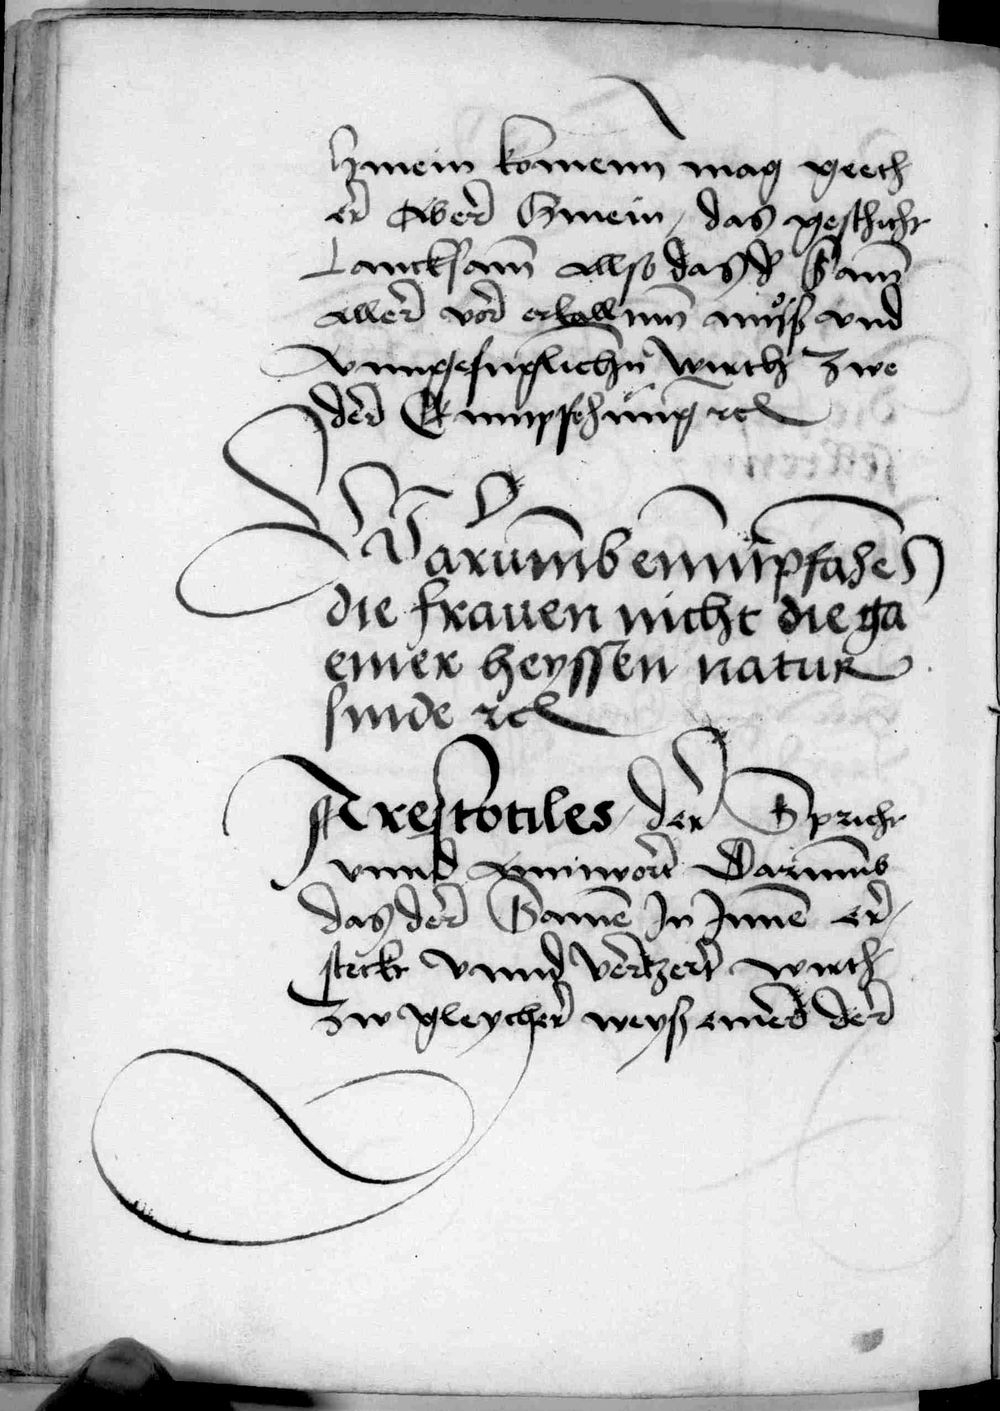 hinein komenn mag geeth
er aber hinein / das geschicht
Lancksam Also das der Sam
aller vor erkallnn muß vnd
vnngefuglichenn wirth zwe
der Ennpfehüng rc
Warumb ennpfahen
die frauen nicht die ga
einer heyssen natur
sinde rc
Arestotiles / der Spricht
vnnd Anntwort Darumb
das der Samen In Innen er /
steckt vnnd verzert wirth
Zw gleycher weyß einer der